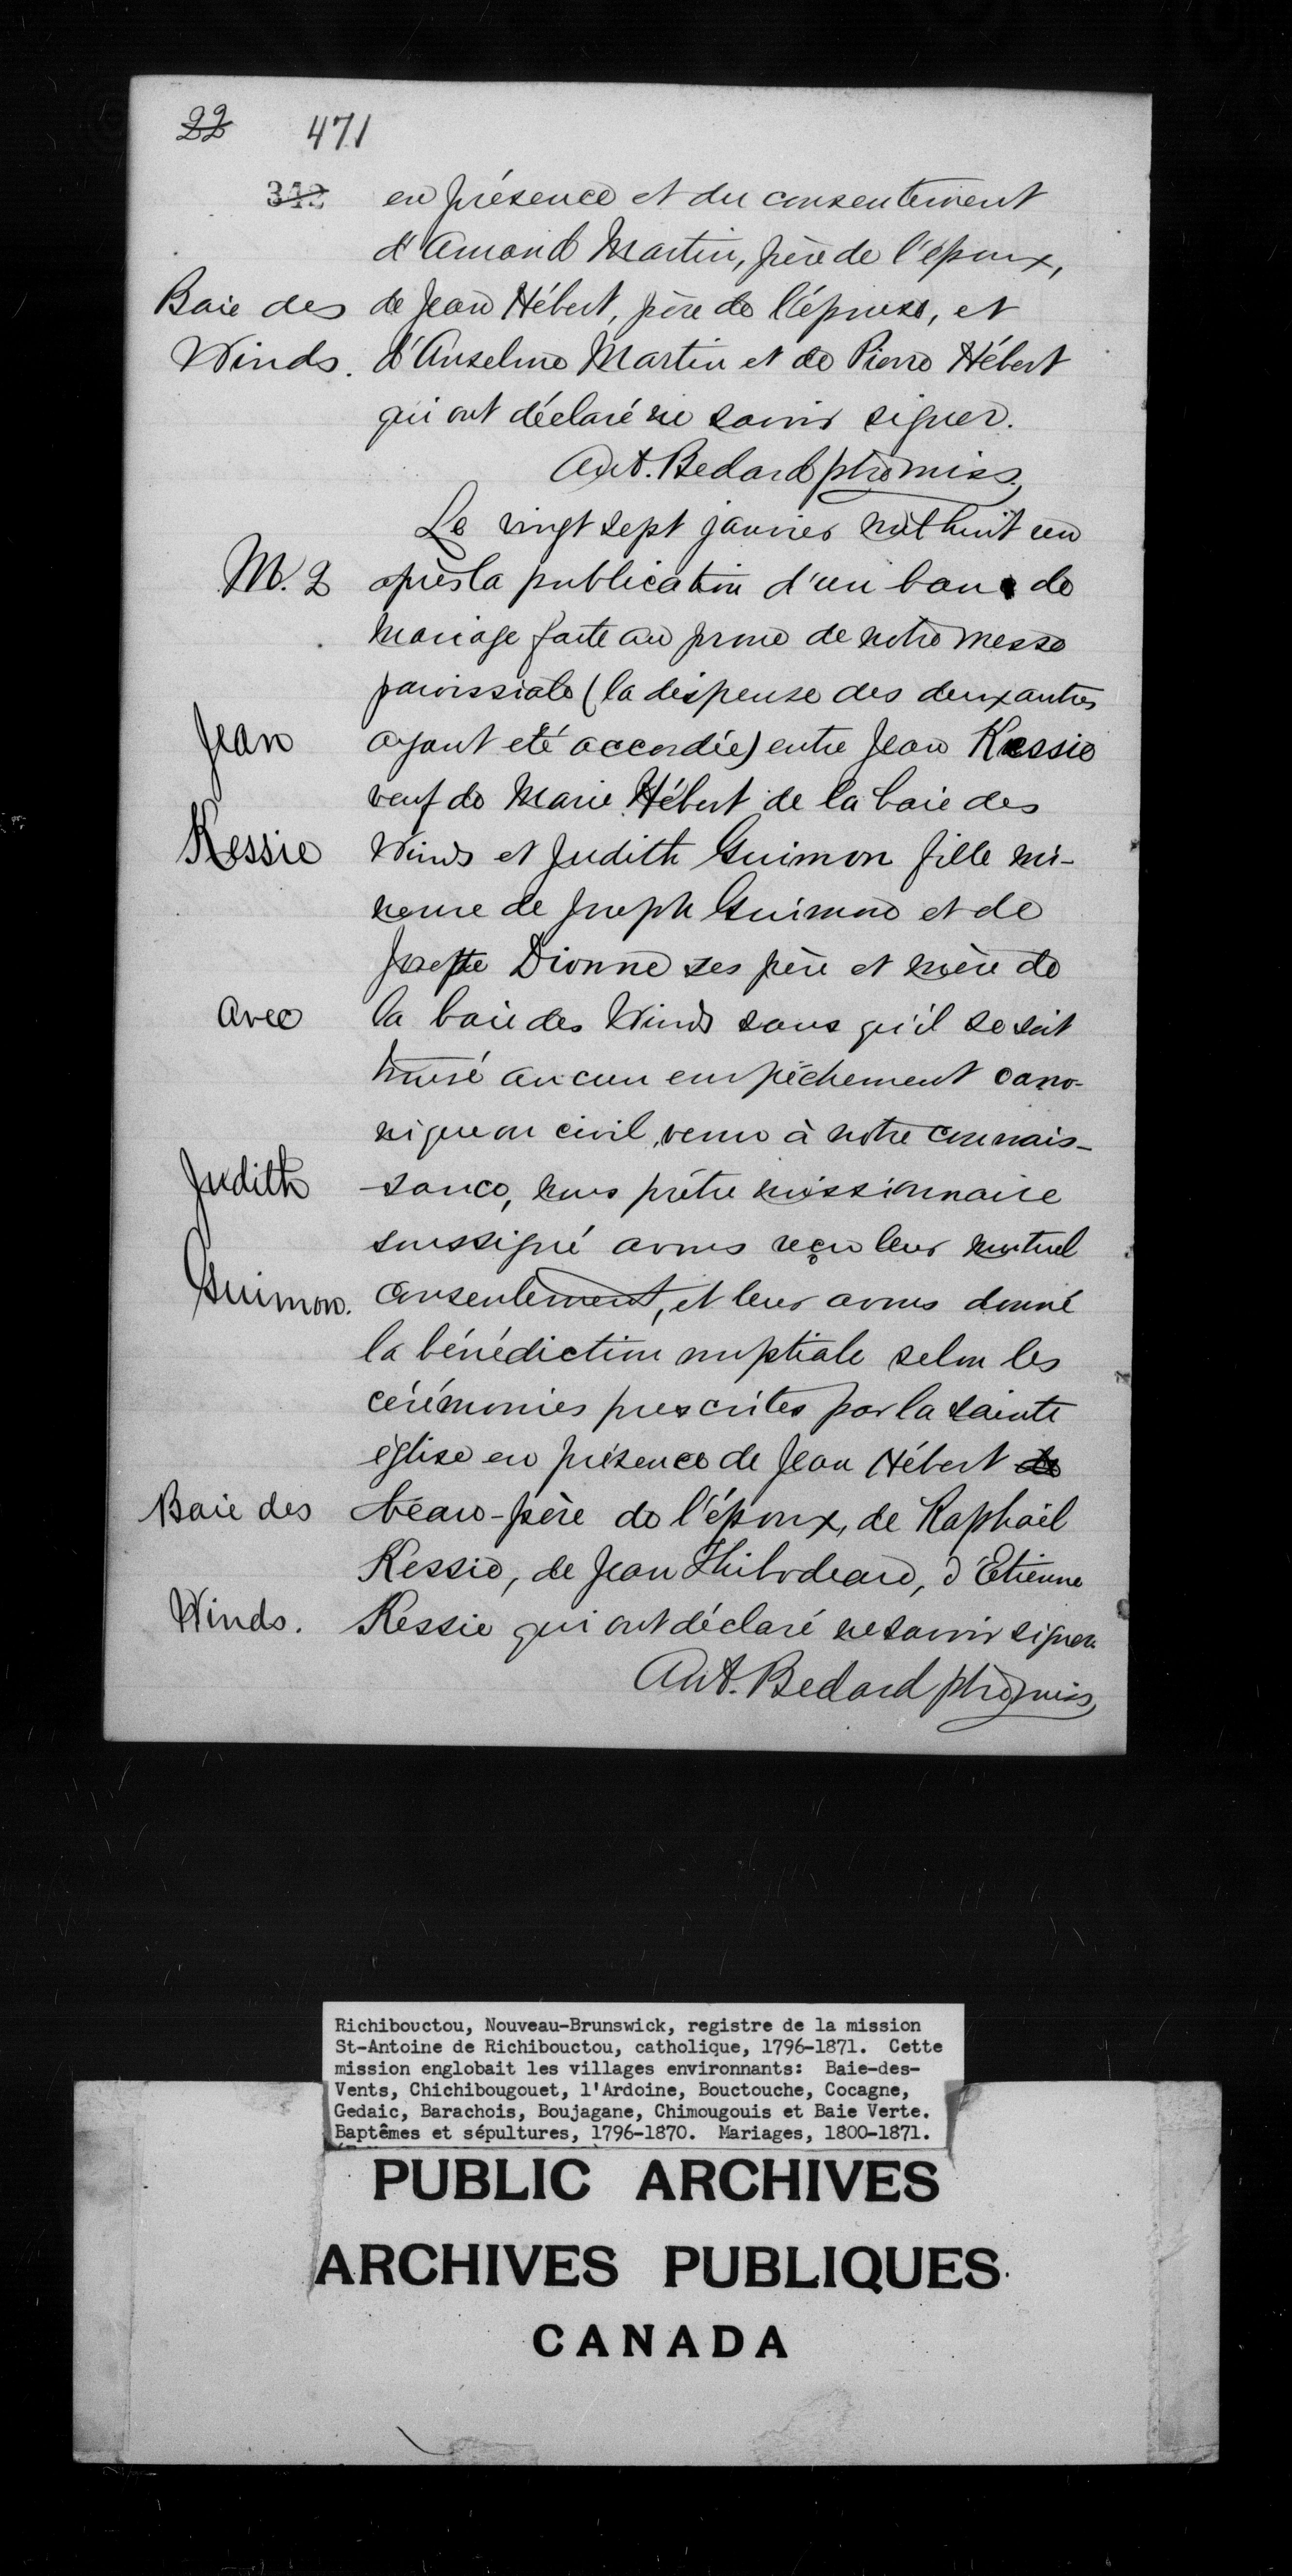 22 471
342 en présence et du consentement
d'Amand Martin, père de l'époux,
Baie des de Jean Hébert, père de l'épouse, et
Winds. d'Anselme Martin et de Pierre Hébert
qui ont déclaré ne savoir signer.
Ant. Bedard ptre miss.
Le vingt sept janvier mil huit cen
M. 2 après la publication d'un banc de
mariage faite au prone de notre messe
paroissiale (la dispense des deux autres
Jean ayant eté accordée) entre Jean Kessie
veuf de Marie Hébert de la baie des
Kessie Winds et Judith Guimon fille mi-
neure de Joseph Guimond et de
Josephte Dionne ses père et mère de
avec la baie des Winds sans qu'il se soit
trouvé aucun empêchement cano-
nique ou civil, venu à notre connais-
Judith -sance, nous prêtre missionnaire
soussigné avons reçu leur mutuel
Guimon. consentement, et leur avons donné
la bénédiction nuptiale selon les
cérémonies prescrites par la sainte
église en présence de Jean Hébert de
Baie des beau-père de l'époux, de Raphaël
Kessie, de Jean Thibodeau, d'Etienne
Winds. Kessie qui ont déclaré ne savoir signer
Ant. Bedard ptre miss,
Richibouctou, Nouveau-Brunswick, registre de la mission
St-Antoine de Richibouctou, catholique, 1796-1871. Cette
mission englobait les villages environnants: Baie-des-
Vents, Chichibougouet, l'Ardoine, Bouctouche, Cocagne,
Gedaic, Barachois, Boujagane, Chimougouis et Baie Verte.
Baptêmes et sépultures, 1796-1870. Mariages, 1800-1871.
PUBLIC ARCHIVES
ARCHIVES PUBLIQUES
CANADA